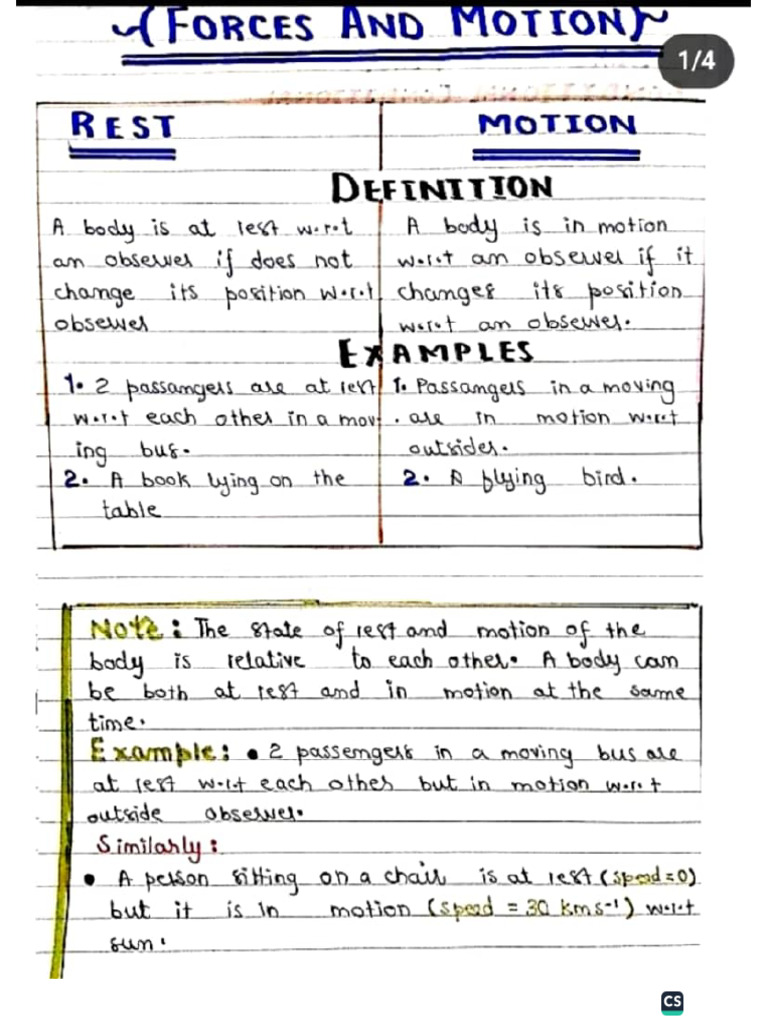 ~(FORCES AND MOTION)~
1/4
REST
MOTION
DEFINITION
A body is at rest w.r.t
an observer if does not
change its position w.r.t
observer
A body is in motion
w.r.t an observer if it
changes its position
w.r.t an observer.
EXAMPLES
1. 2 passangers are at rest
w.r.t each other in a mov
ing bus.
2. A book lying on the
table
1. Passangers in a moving
. are in motion w.r.t
outsider.
2. A flying bird.
Note: The state of rest and motion of the
body is relative to each other. A body can
be both at rest and in motion at the same
time.
Example: • 2 passengers in a moving bus are
at rest w.r.t each other but in motion w.r.t
outside observer.
Similarly:
• A person sitting on a chair is at rest (speed=0)
but it is in motion (speed = 30 kms⁻¹) w.r.t
sun.
CS